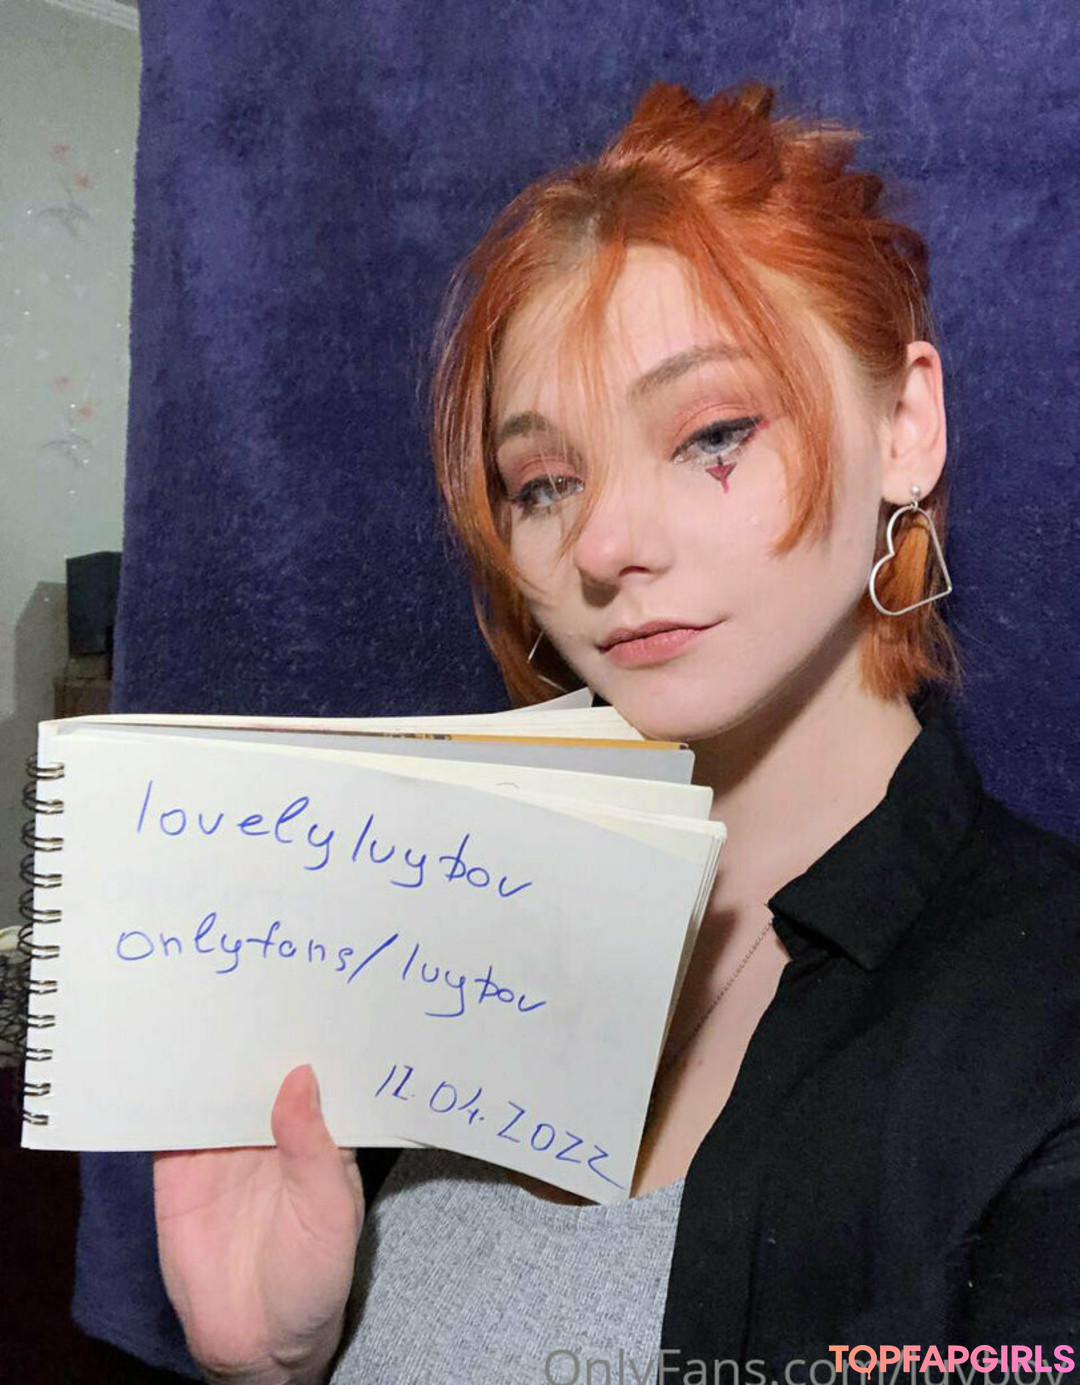 lovelyluypov
onlyfans/luypov
12.04.2022
OnlyFans.com/luypov
TOPFAPGIRLS